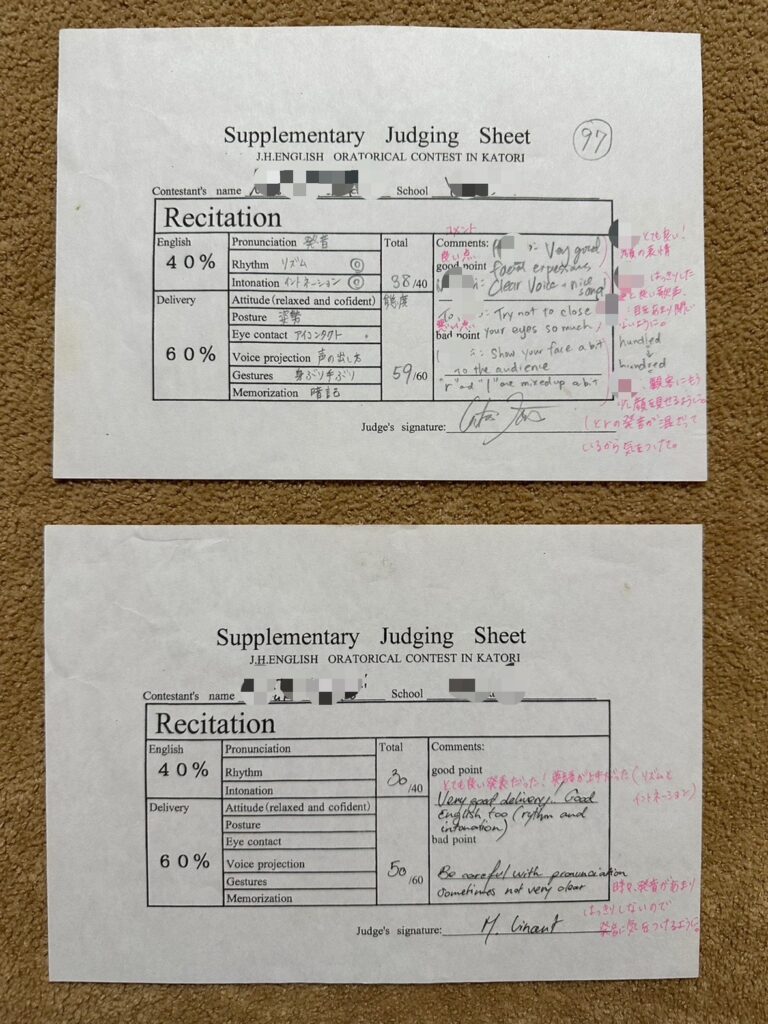 Supplementary Judging Sheet
97
J.H.ENGLISH ORATORICAL CONTEST IN KATORI
Contestant's name School
Recitation
English
40%
Pronunciation 発音
Rhythm リズム ◎
Intonation イントネーション ◎
Total
38/40
Delivery
60%
Attitude (relaxed and cofident) 態度
Posture 姿勢
Eye contact アイコンタクト
Voice projection 声の出し方
Gestures 身ぶり手ぶり
Memorization 暗記
59/60
コメント
Comments:
良い点
good point
: Very good
facial
: Clear voice + nice
song
悪い点
bad point
: Try not to close
your eyes so much
: Show your face a bit
to the audience
"r" ad "l" are mixed up a bit
とても良い!
顔の表情
はっきりした
良い歌声
目をあまり閉じ
ないように。
hundled
↓
hundred
観客にもう
顔を見せるように。
lとrの発音が混ざって
いるから気をつけて。
Judge's signature:
Supplementary Judging Sheet
J.H.ENGLISH ORATORICAL CONTEST IN KATORI
Contestant's name School
Recitation
English
40%
Pronunciation
Rhythm
Intonation
Total
30/40
Delivery
60%
Attitude (relaxed and cofident)
Posture
Eye contact
Voice projection
Gestures
Memorization
50/60
Comments:
good point
とても良い発表だった! 発音が上手だった (リズムと
イントネーション)
Very good delivery. Good
English too (rythm and
intonation)
bad point
Be careful with pronunciation
sometimes not very clear
時々、発音があまり
はっきりしないので
発音に気をつけるように。
Judge's signature: M.